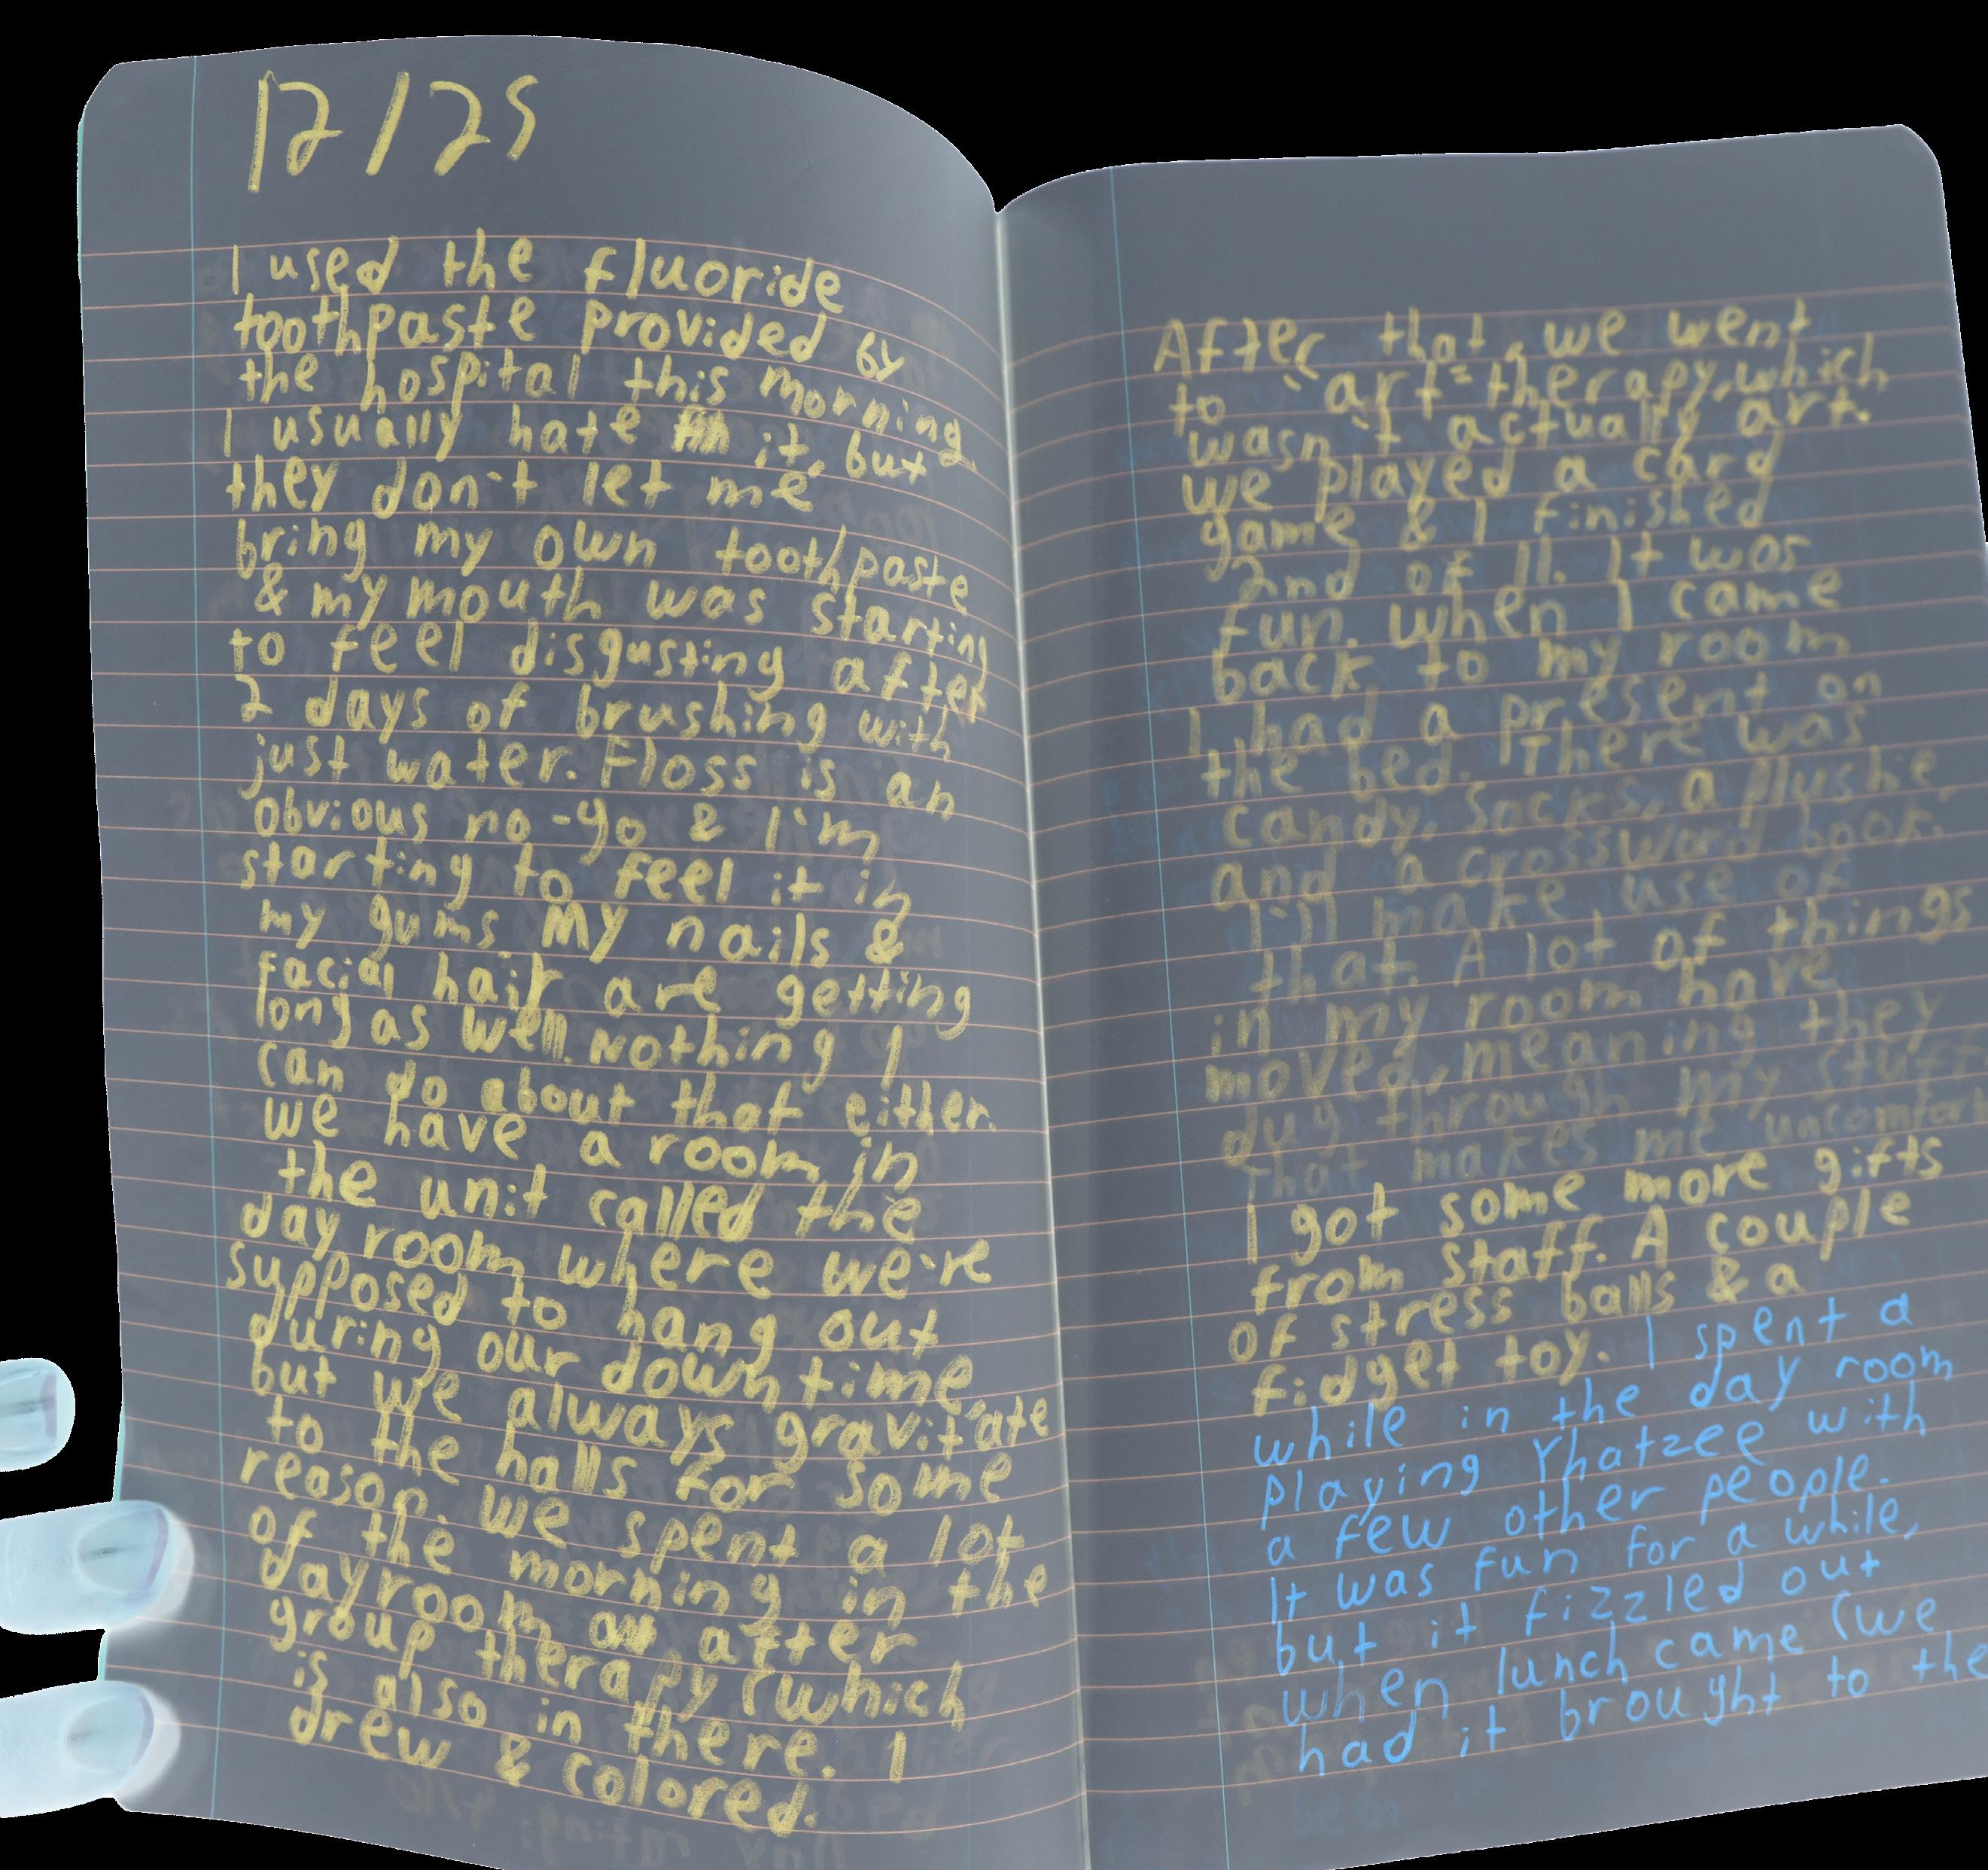 12/25
I used the fluoride
toothpaste provided by
the hospital this morning.
I usually hate it, but
they don't let me
bring my own toothpaste
& my mouth was starting
to feel disgusting after
2 days of brushing with
just water. Floss is an
obvious no-go & I'm
starting to feel it in
my gums My nails &
facial hair are getting
long as well. Nothing I
can do about that either.
we have a room in
the unit called the
day room where we're
supposed to hang out
during our down time,
but we always gravitate
to the halls for some
reason. we spent a lot
of the morning in the
dayroom after
group therapy (which
is also in there. I
drew & colored.
After that, we went
to "art" therapy, which
wasn't actually art.
we played a card
game & I finished
2nd of 11. It was
fun. when I came
back to my room
I had a present on
the bed. There was
candy, socks, a plushe,
and a crossword book.
I'll make use of
that. A lot of things
in my room have
moved, meaning they
dug through my stuff.
That makes me
I got some more gifts
from staff. A couple
of stress balls & a
fidget toy. I spent a
while in the day room
playing Yhatzee with
a few other people.
It was fun for a while,
but it fizzled out
when lunch came (we
had it brought to the